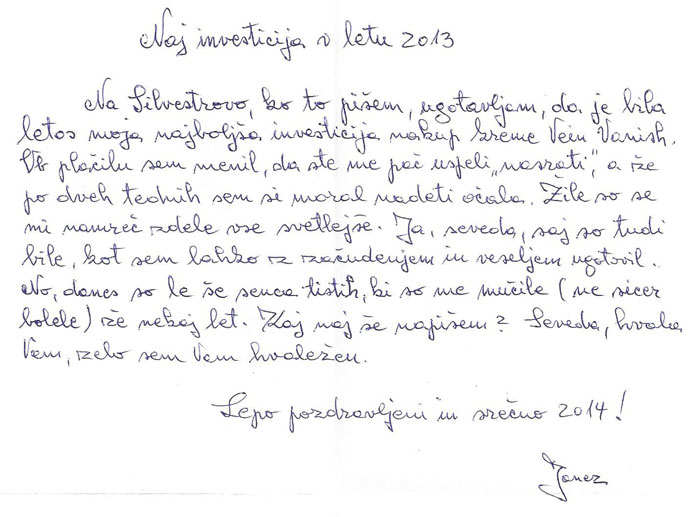 Naj investicija v letu 2013
Na Silvestrovo, ko to pišem, ugotavljam, da je bila
letos moja najboljša investicija nakup kreme Vein Vanish.
Ob plačilu sem menil, da ste me pač uspeli „nasrati“, a že
po dveh tednih sem si moral nadeti očala. Žile so se
mi namreč zdele vse svetlejše. Ja, seveda, saj so tudi
bile, kot sem lahko z začudenjem in veseljem ugotovil.
No, danes so le še senca tistih, ki so me mučile (ne sicer
bolele) že nekaj let. Kaj naj še napišem? Seveda, hvala
Vam, zelo sem Vam hvaležen.
Lepo pozdravljeni in srečno 2014!
Janez